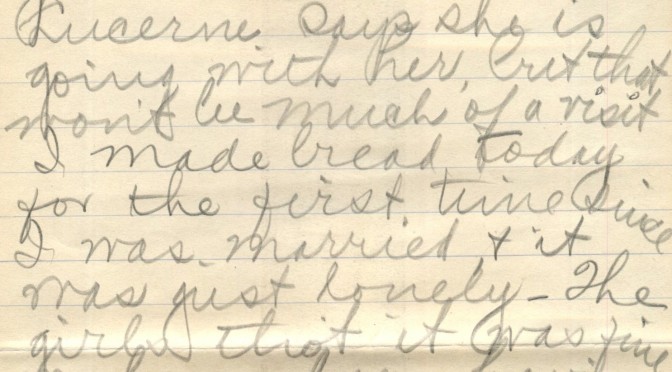 Lucerne says she is
going with her, but that
won't be much of a visit
I made bread today
for the first time since
I was married & it
was just lonely - The
girls thot it was fine